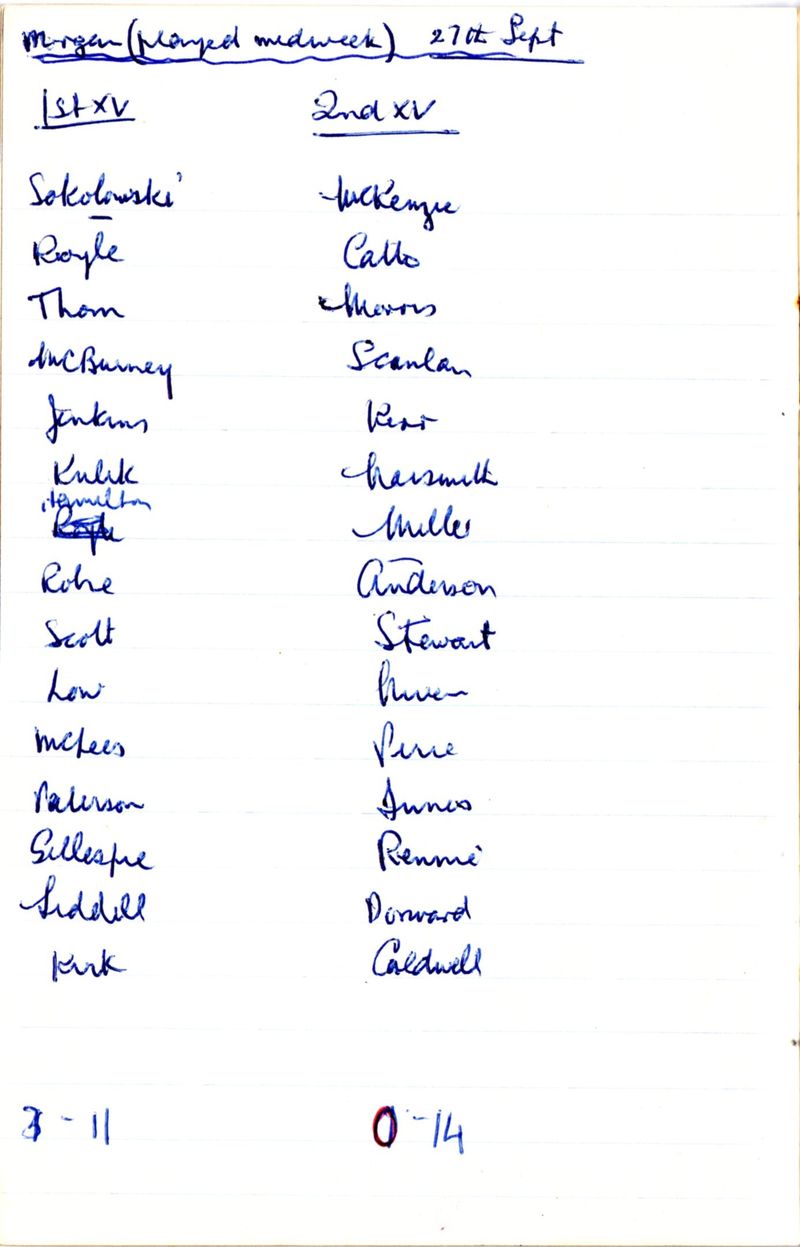 Morgan (played midweek) 27th Sept
1st XV 2nd XV
Sokolowski McKenzie
Royle Catto
Thom Morris
McBurney Scanlan
Jenkins Kerr
Kulik Naismith
Hamilton
Miller
Robie Anderson
Scott Stewart
Low Niven
McLees Pirie
Paterson Innes
Gillespie Rennie
Liddell Dorward
Kirk Caldwell
3 - 11 0 - 14